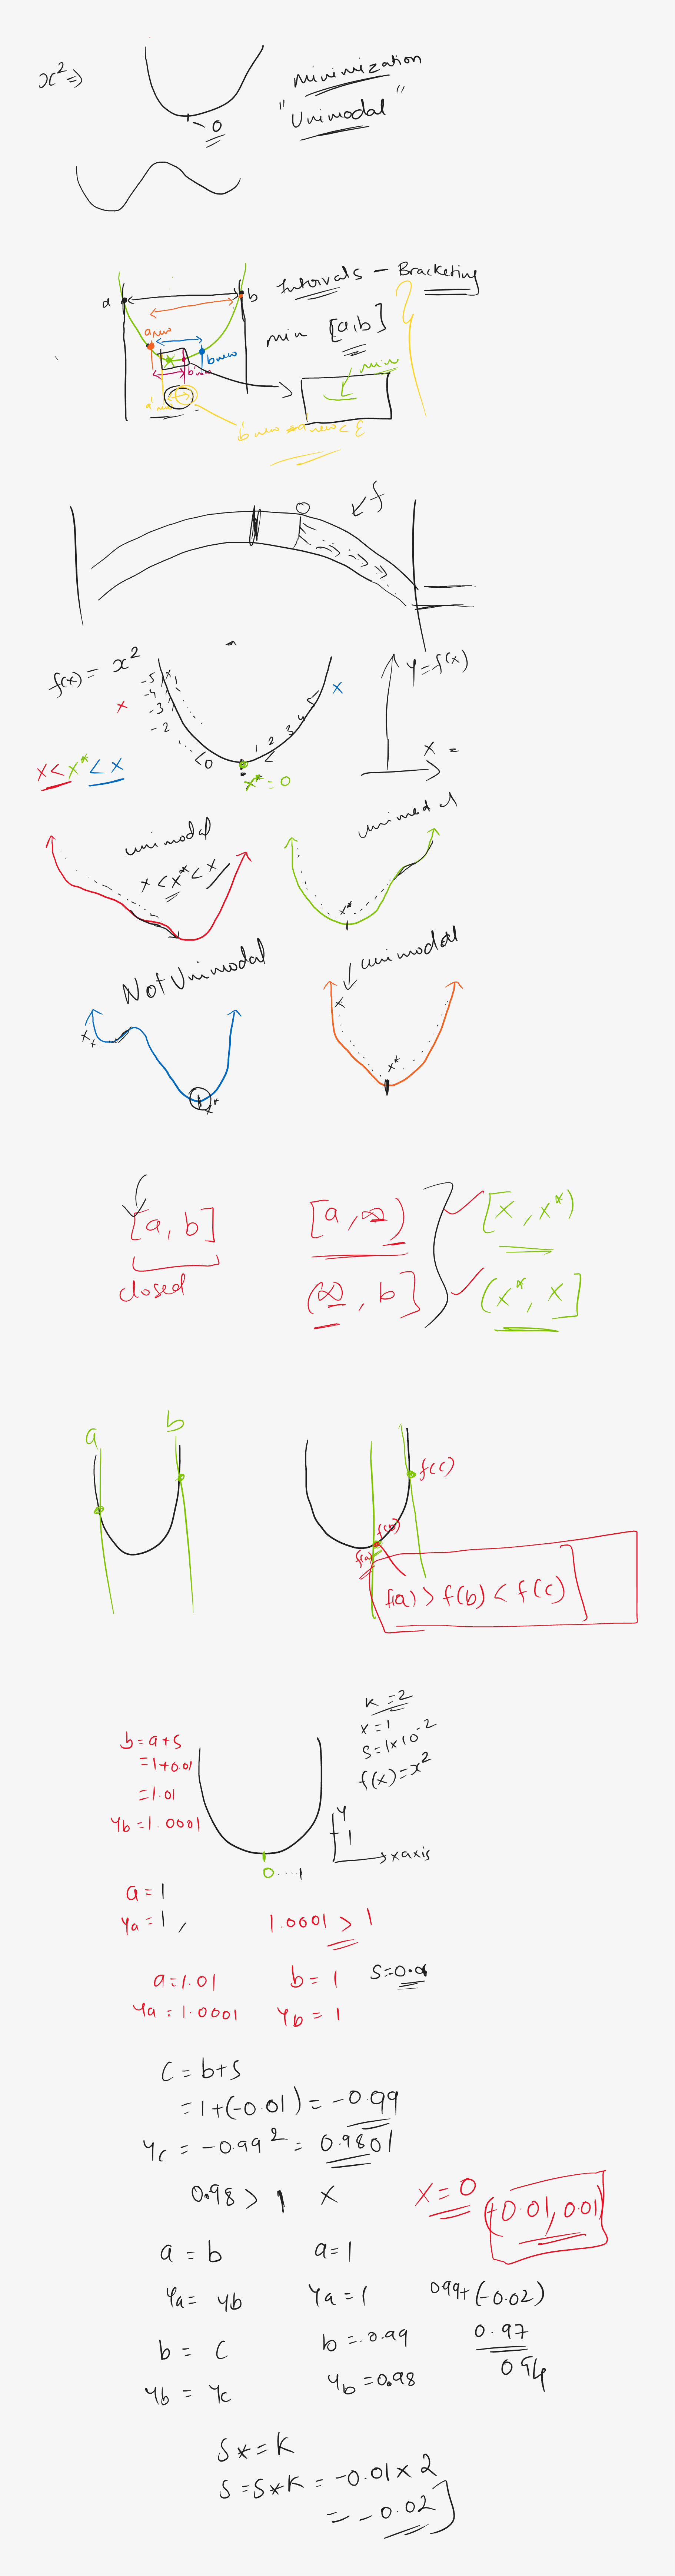 x² ⇒
minimization
"Unimodal"
0
Intervals - Bracketing
a
b
min [a,b]
a new
b new
b'new
min
a'new
b'new - a'new < ε
f
0
f(x) = x²
y = f(x)
-5
-4
-3
-2
x
x
1 2 3 4 5
<0
<
x* = 0
x =
x < x* < x
unimodal
x < x* < x
unimodal
x*
Not Unimodal
unimodal
x
x
x*
x*
[a, b]
closed
[a, ∞)
(∞, b]
[x, x*)
(x*, x]
a
b
f(c)
f(b)
f(a)
f(a) > f(b) < f(c)
K = 2
x = 1
s = 1x10⁻²
f(x) = x²
b = a+s
= 1+0.01
= 1.01
yb = 1.0001
y
1
x axis
0....1
a = 1
ya = 1,
1.0001 > 1
a = 1.01
b = 1
ya = 1.0001
yb = 1
C = b+s
= 1+(-0.01) = -0.99
yc = -0.99² = 0.9801
0.98 > 1 x
x = 0
(-0.01, 0.01)
a = b
a = 1
ya = yb
ya = 1
0.99+(-0.02)
b = c
b = 0.99
0.97
yb = yc
yb = 0.98
0.94
S *= K
S = S*K = -0.01 x 2
= -0.02